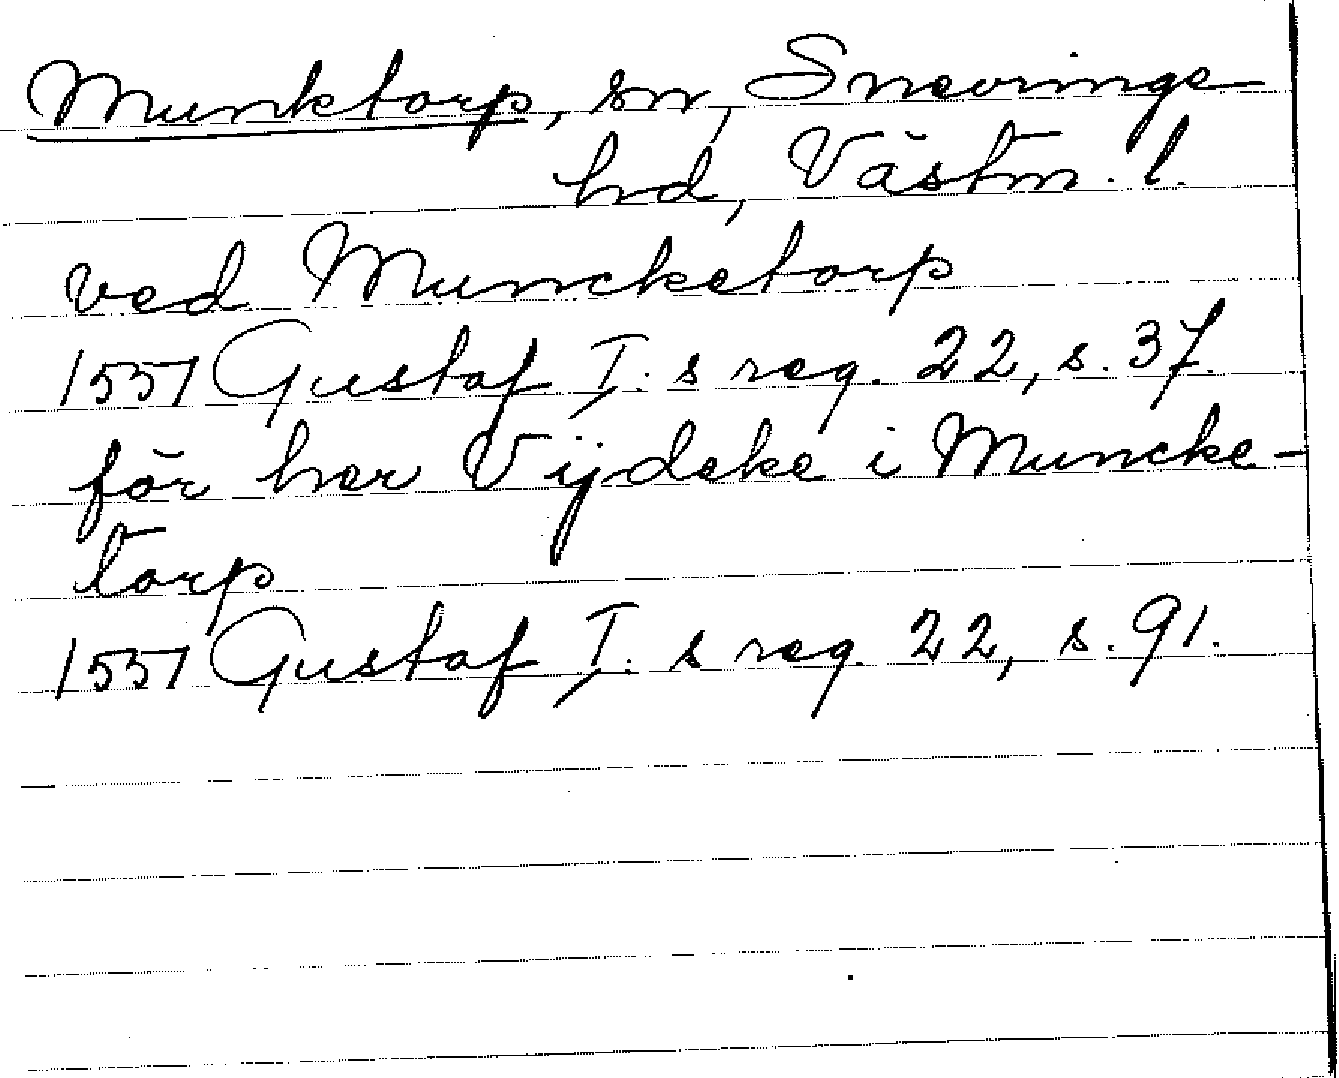 Munktorp, sn, Snevringe
hd, Västm. l.
ved Muncketorp
1551 Gustaf I. s reg. 22, s. 37.
för her Vijdeke i Muncke-
torp
1551 Gustaf I. s reg. 22, s. 91.